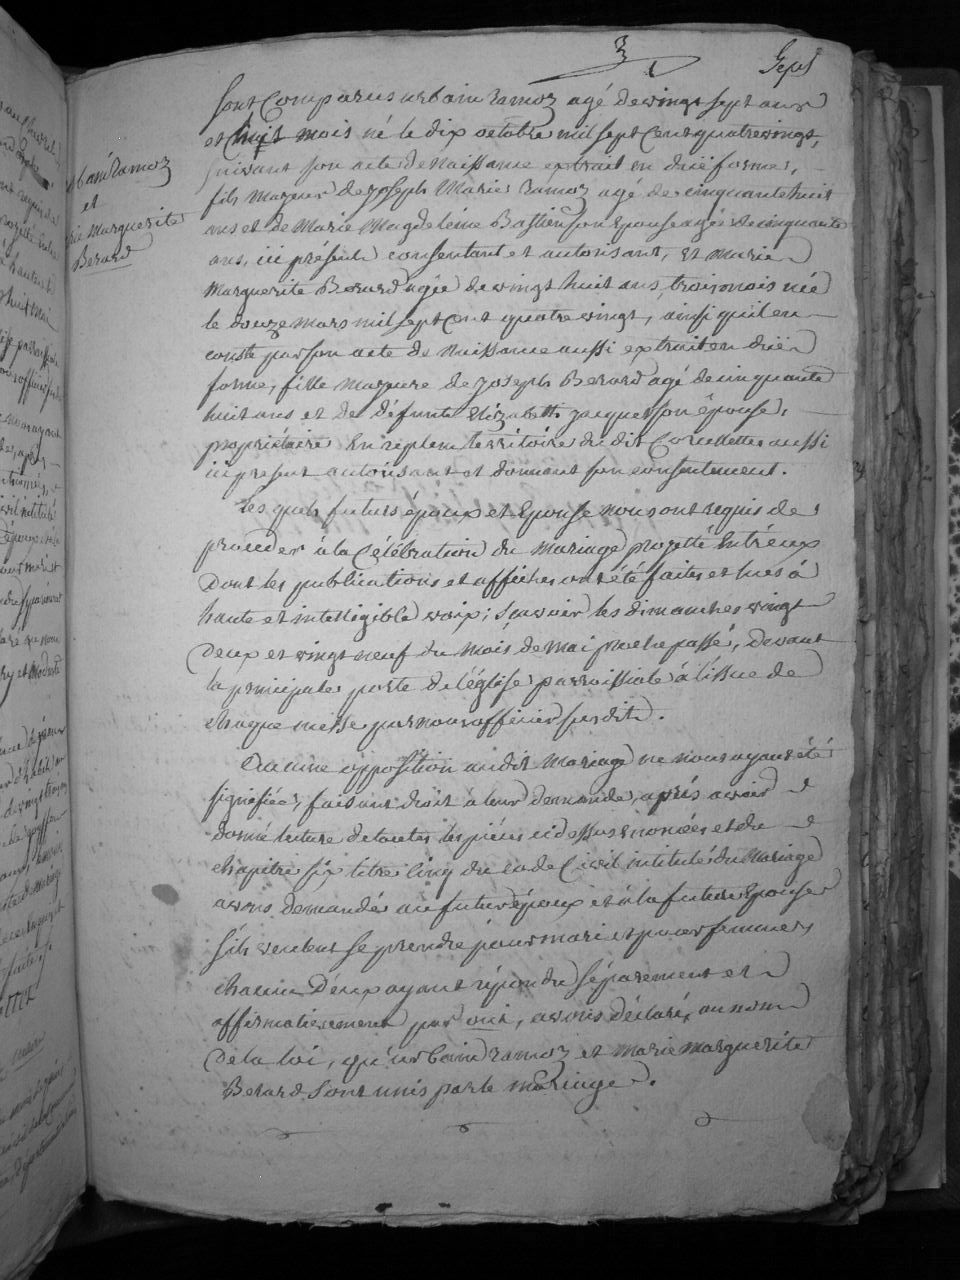 3
sont Comparus urbain ramoz agé de vingt sept ans
et huit mois né le dix octobre mil sept Cent quatre vingt,
suivant son acte de Naissance extrait en düe forme,
fils Majeur de joseph Marie ramoz agé de cinquante huit
ans et de Marie Magdeleine Bastien son Epouse agée de cinquante
ans, ici présents consentant et autorisant, Et Marie
Marguerite Berard agée de vingt huit ans, trois mois née
le douze mars mil sept Cent quatre vingt, ainsi qu'il en
conste par son acte de Naissance aussi extrait en düe
forme, fille Majeure de joseph Berard agé de cinquante
huit ans et de défunte Elizabeth jacquet son épouse,
propriétaire territoire du dit aussi
ici present autorisant et donnant son consentement.
Les quels futurs époux et Epouse nous ont requis de
proceder à la Célébration du Mariage projetté Entr'eux
Dont les publications et affiches ont été faites et lues à
haute et intelligible voix; sçavoir les dimanches vingt
Deux et vingt neuf du mois de mai proche passé, devant
la principale porte de l'église parroissiale à l'issue de
chaque messe par nous officier susdit.
Aucune opposition audit Mariage ne nous ayant été
signifiée, faisant droit à leur demande, après avoir
donné lecture de toutes les pièces ci dessus enoncées et du
chapitre six titre Cinq du code Civil intitulé du Mariage
avons demandé au futur époux et à la future Epouse
s'ils veulent se prendre pour mari et pour femme,
chacun D'eux ayant répondu séparement et
affirmativement par oui, avons déclaré, au nom
De la loi, qu'urbain ramoz et Marie Marguerite
Berard sont unis par le mariage.
bain Ramoz
et
rie Marguerite
Berard